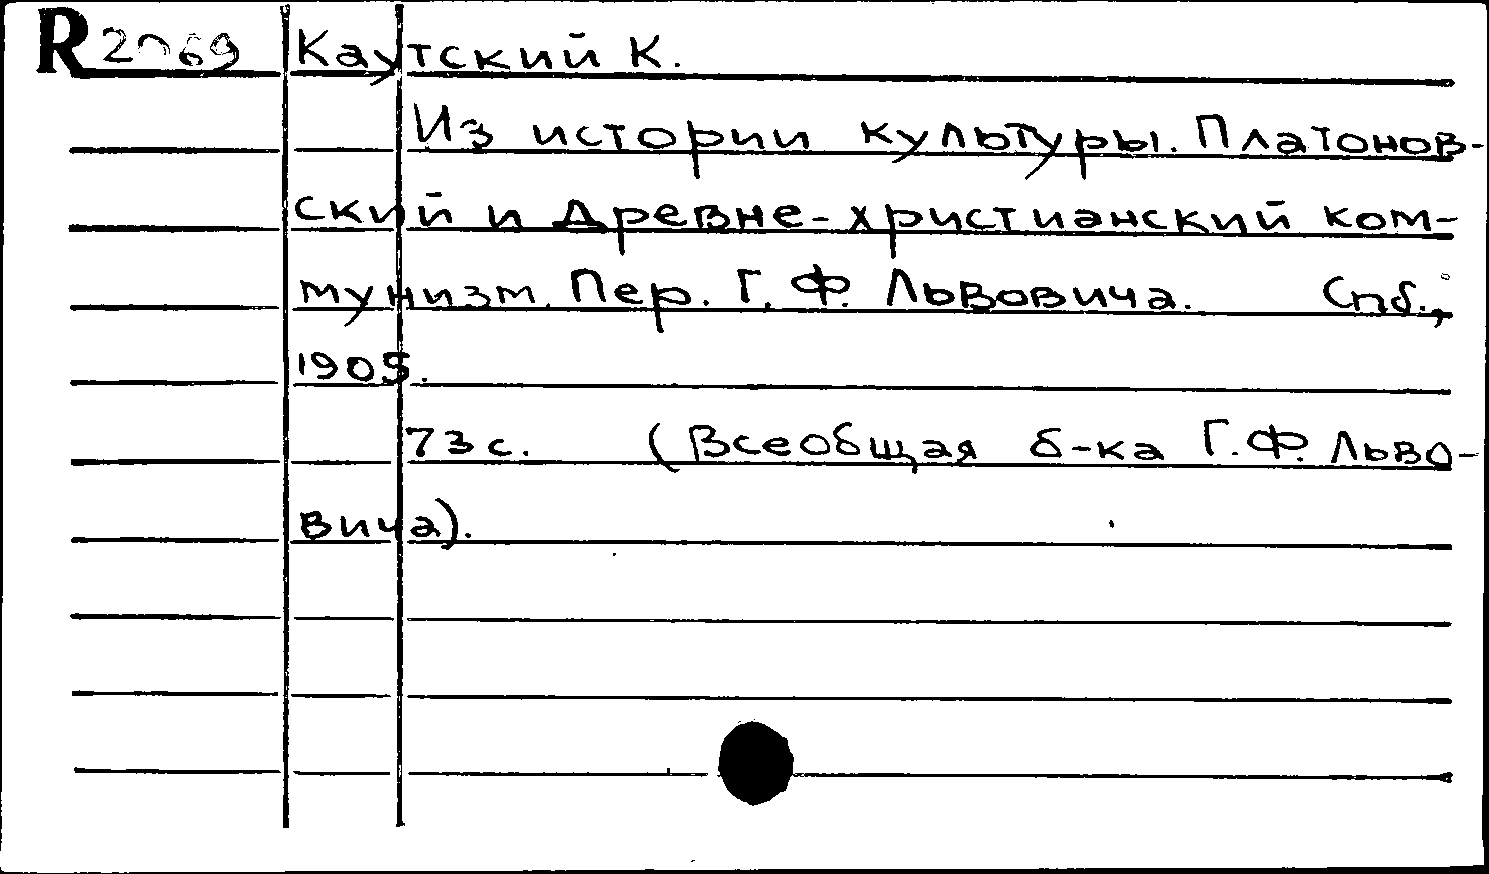 R 2069 Каутский К.
Из истории культуры. Платонов-
ский и древне-христианский ком-
мунизм. Пер. Г. Ф. Львовича. Спб.,
1905.
73 с. (Всеобщая б-ка Г. Ф. Льво-
вича).